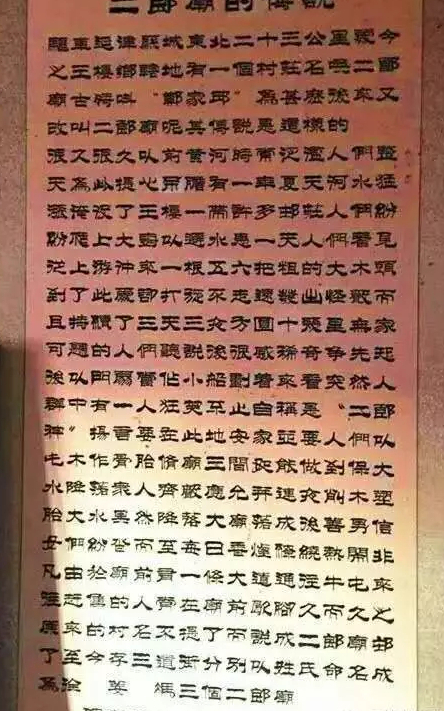 二郎廟的傳說
延津縣城東北二十三公里處今
之王樓鄉轄地有一個村莊名喚二郎
廟古時叫“鄭家邱”為甚麽後來又
改叫二郎廟呢其傳說是這樣的
很久很久以前黃河時常泛濫人們整
天為此提心吊膽有一年夏天河水猛
漲淹沒了王樓一帶許多邨莊人們紛
紛爬上大堤以避水患一天人們看見
從上游沖來一根五六把粗的大木頭
到了此處卻打旋不走還發出怪而
且持續了三天三夜方圓十幾里無家
可歸的人們聽說後很感稀奇爭先起
後以門扇當小船劃着來看突然人
群中有一人狂笑不止自稱是“二郎
神”揚言要在此地安家並要人們以
屯木作骨胎脩廟三間衆人到大
水降落衆人齊應允並連夜削木塑
胎大水果然降落大廟落成後善男信
女們紛紛而至每日香燈繚繞熱鬧非
凡由於廟前一條大道通往牛屯來
往趕集的人常在廟前歇腳久而久之
原來的村名不提了而說成二郎廟邨
了至今存三道街分別以姓氏命名成
為涂 馮三個二郎廟